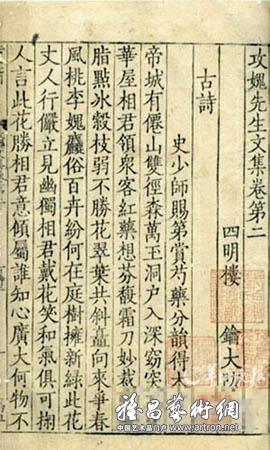 攻媿先生文集卷第二
四明樓 鑰大防
古詩
史少師賜第賞芍藥分韻得木
帝城有僊山雙徑森萬玉洞户入深窈突
華屋相君領衆客紅藥想芬馥霜刀妙裁
脂點冰縠枝弱不勝花翠葉共斜矗向來爭春
風桃李媿麤俗百卉紛何在庭樹擁新緑此花
丈人行儼立見幽獨相君戴花笑和氣俱可掬
人言此花勝相君意傾屬誰知心廣大何物不
雅昌藝術網
中国艺术品门户
www.artron.net